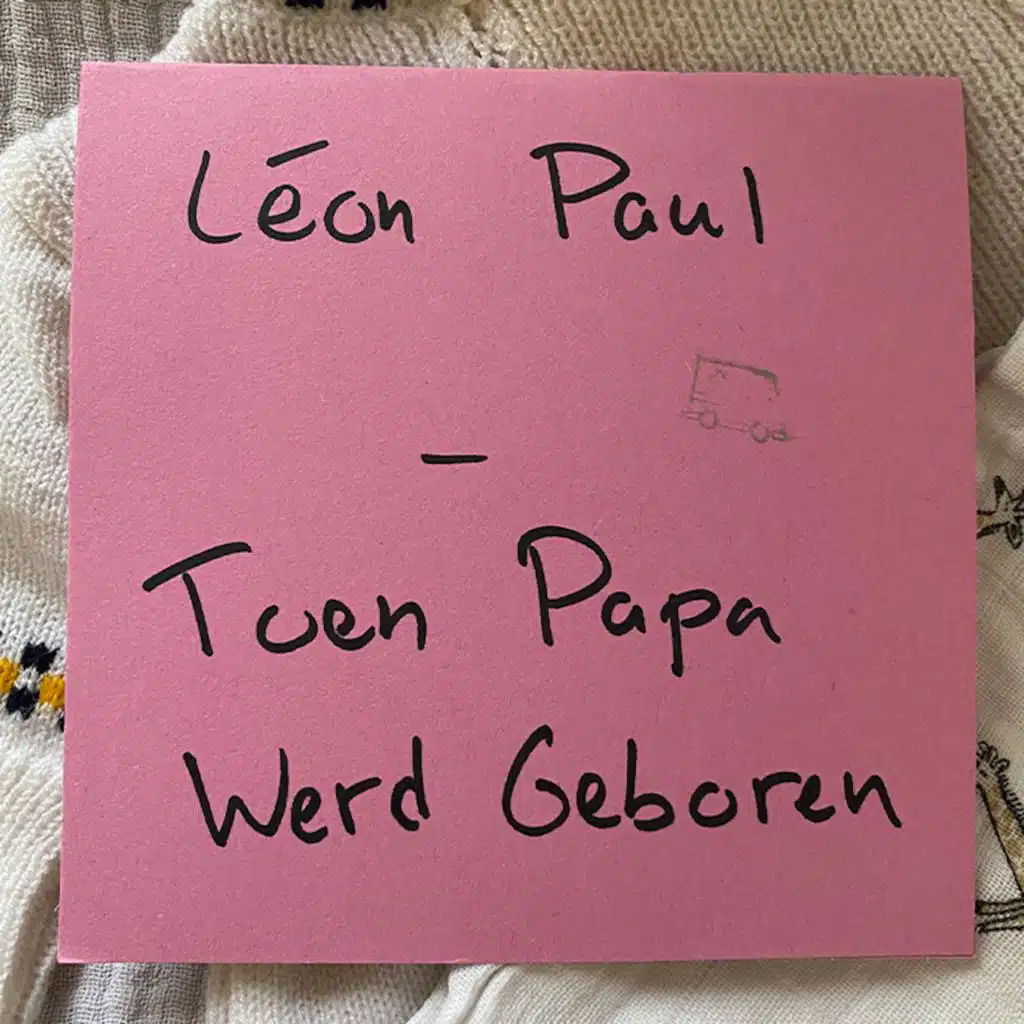 Léon Paul
–
Toen Papa
Werd Geboren